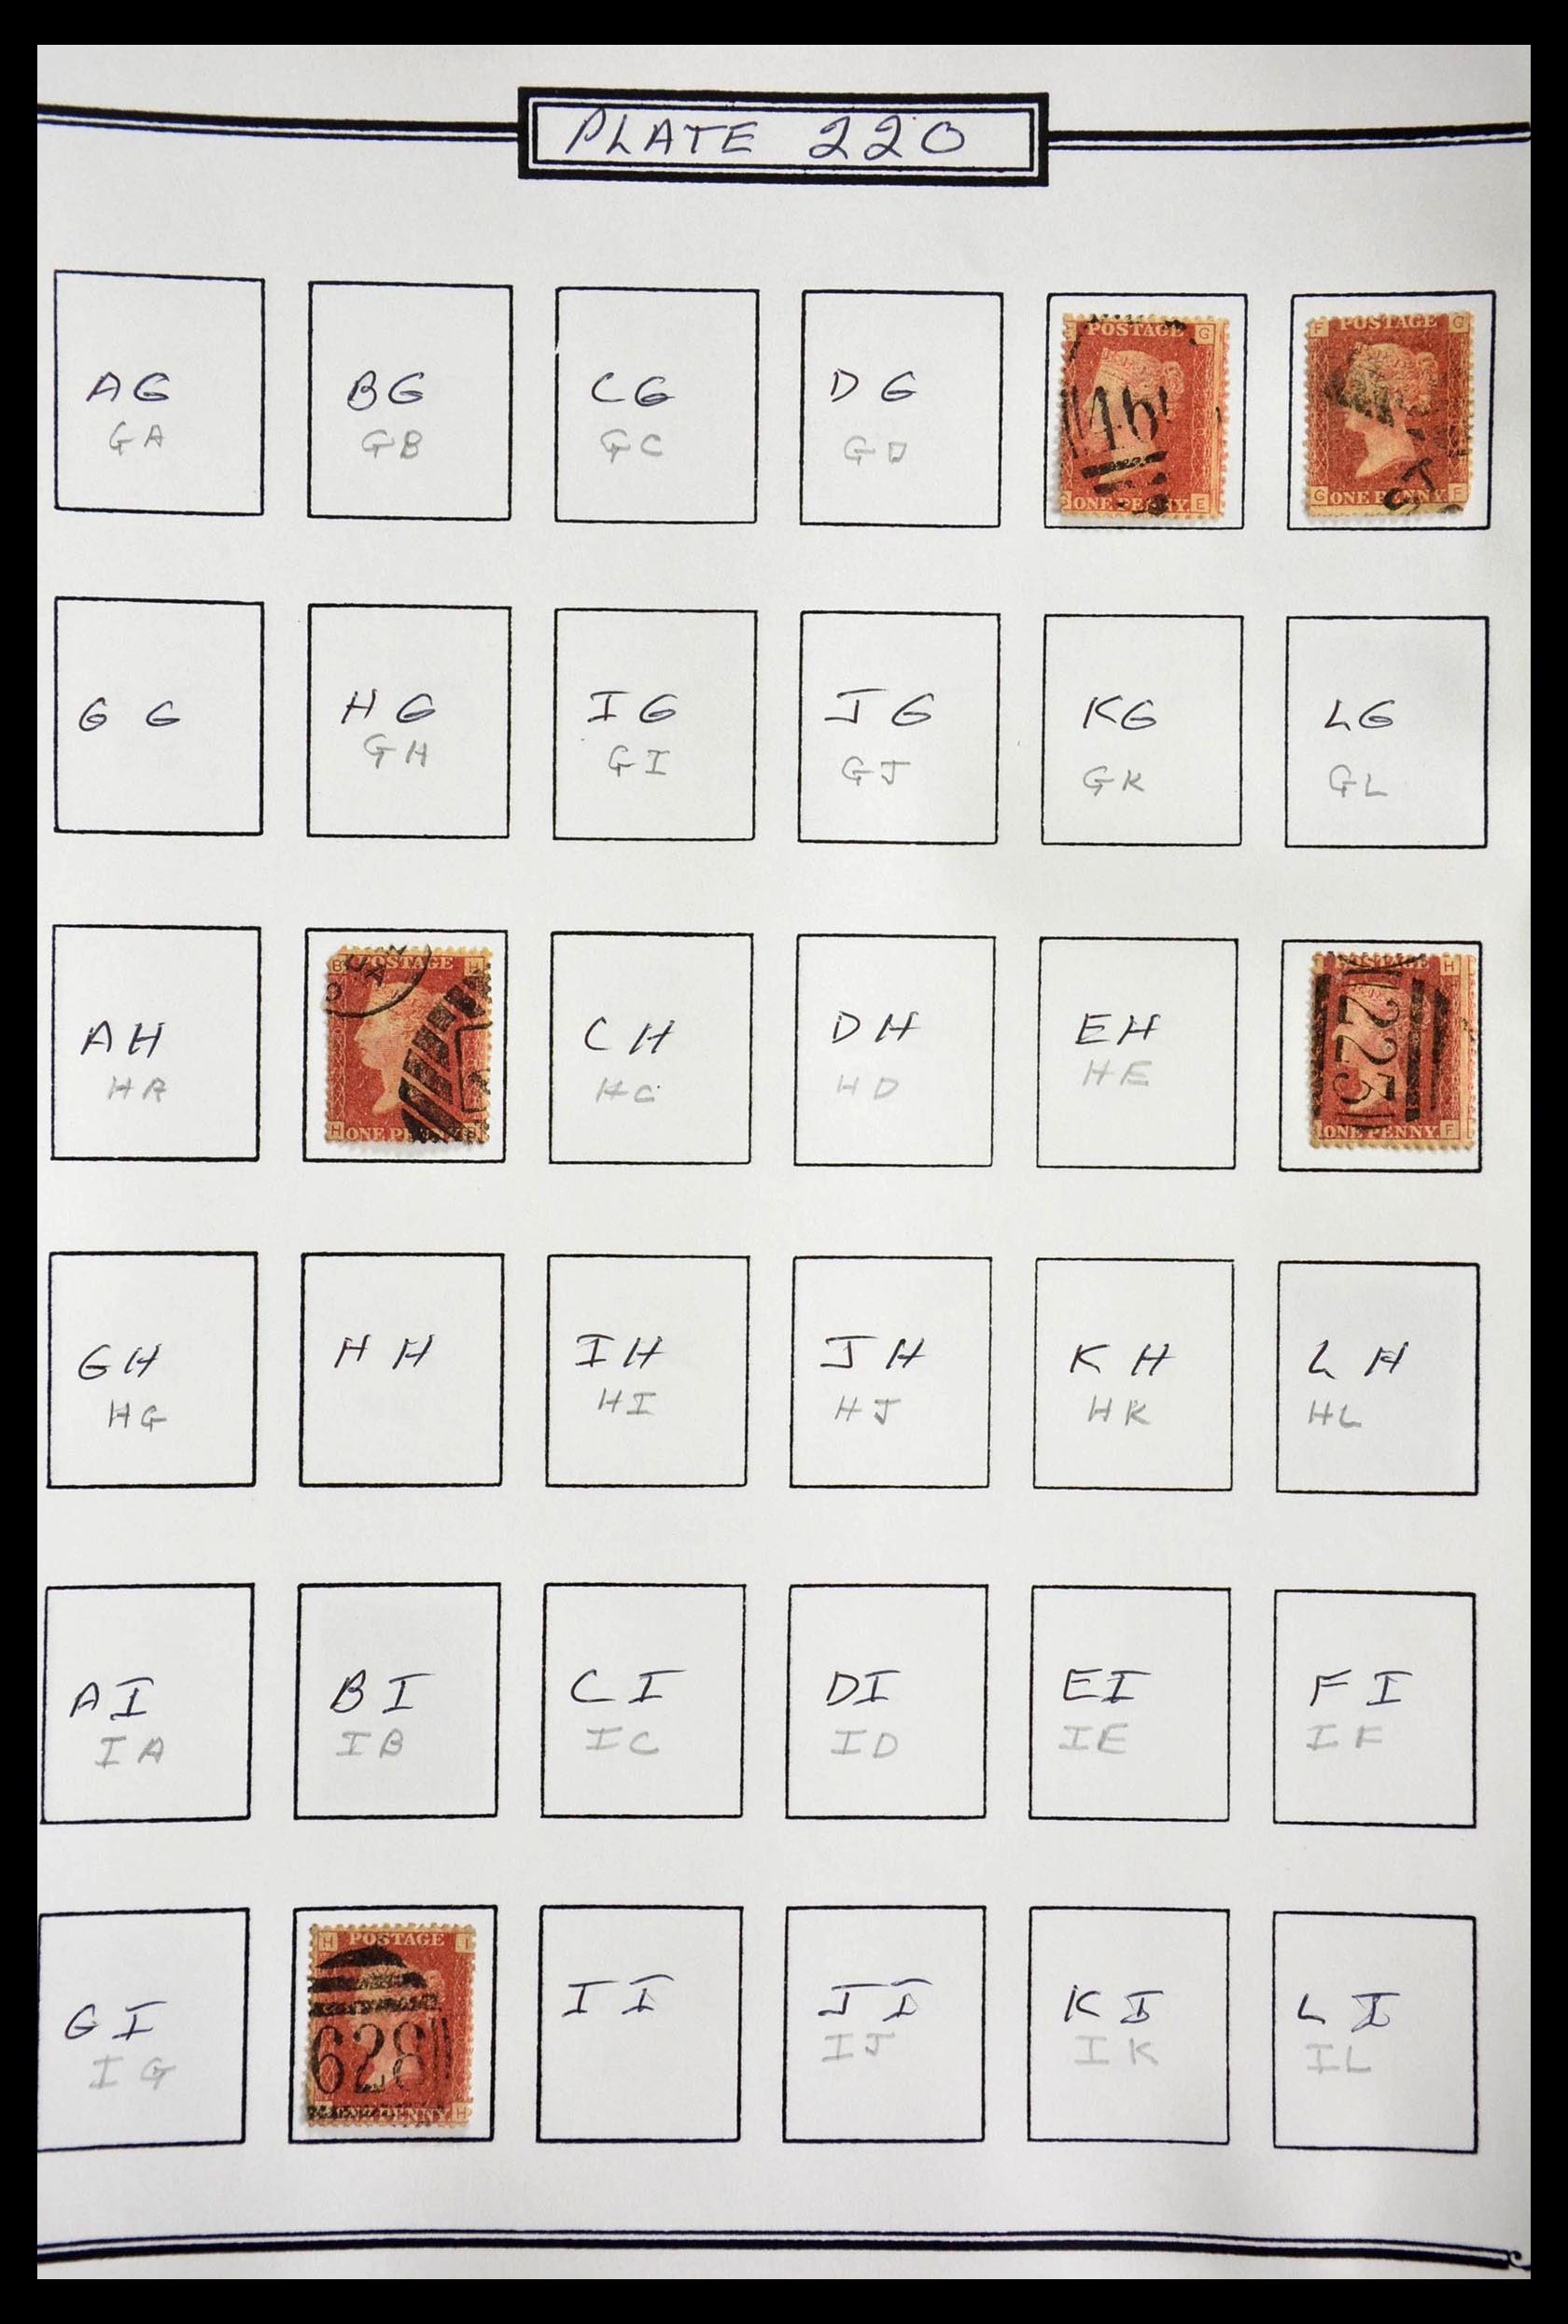 PLATE 220
AG
GA
BG
GB
CG
GC
DG
GD
POSTAGE G
46
ONE PENNY E
F POSTAGE G
G ONE PENNY F
GG
HG
GH
IG
GI
JG
GJ
KG
GK
LG
GL
AH
HA
B POSTAGE H
H ONE PENNY
CH
HC
DH
HD
EH
HE
POSTAGE H
223
ONE PENNY F
GH
HG
HH
IH
HI
JH
HJ
KH
HK
LH
HL
AI
IA
BI
IB
CI
IC
DI
ID
EI
IE
FI
IF
GI
IG
H POSTAGE I
628
ONE PENNY H
II
JI
IJ
KI
IK
LI
IL